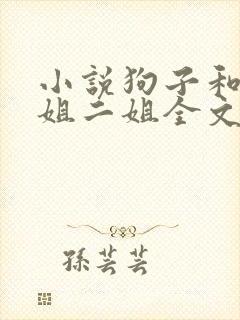 小說狗子和
姐二姐全文
孫芸芸